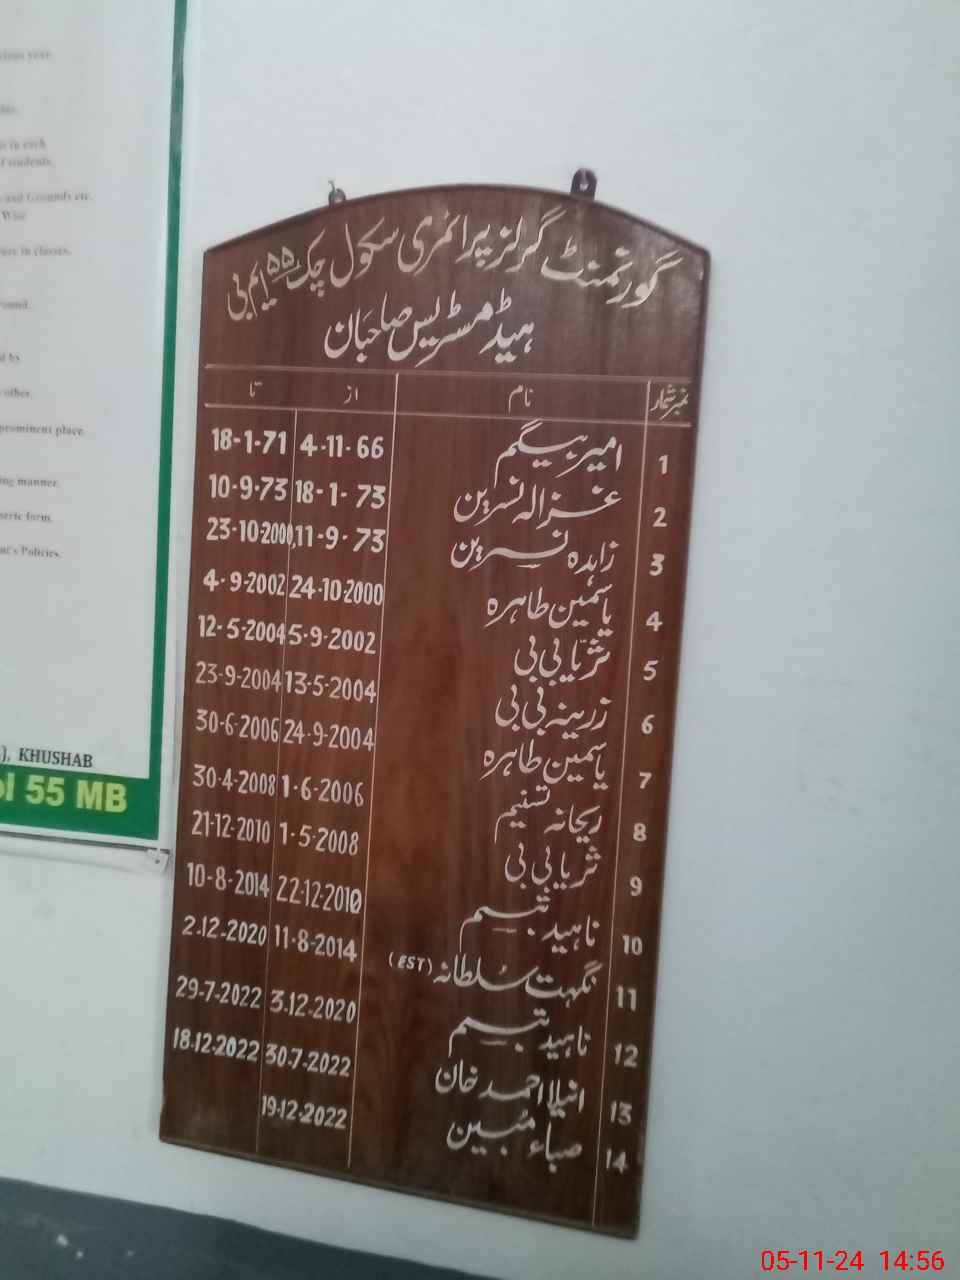 vious year.
s in each
f students.
and Grounds etc.
Wise
ures in classes.
ound.
d by
other.
prominent place.
ing manner.
neric form.
nt's Policies.
), KHUSHAB
ol 55 MB
گورنمنٹ گرلز پرائمری سکول چک ۵۵ ایم بی
ہیڈ مسٹریس صاحبان
نمبر شمار نام از تا
1 امیر بیگم 4-11-66 18-1-71
2 غزالہ نسرین 18-1-73 10-9-73
3 زاہدہ نسرین 11-9-73 23-10-2000
4 یاسمین طاہرہ 24-10-2000 4-9-2002
5 ثریا بی بی 5-9-2002 12-5-2004
6 زرینہ بی بی 13-5-2004 23-9-2004
7 یاسمین طاہرہ 24-9-2004 30-6-2006
8 ریحانہ تسنیم 1-6-2006 30-4-2008
9 ثریا بی بی 1-5-2008 21-12-2010
10 ناہید تبسم 22-12-2010 10-8-2014
11 نگہت سلطانہ (EST) 11-8-2014 2-12-2020
12 ناہید تبسم 3-12-2020 29-7-2022
13 انیلا احمد خان 30-7-2022 18-12-2022
14 صباء مبین 19-12-2022
05-11-24 14:56